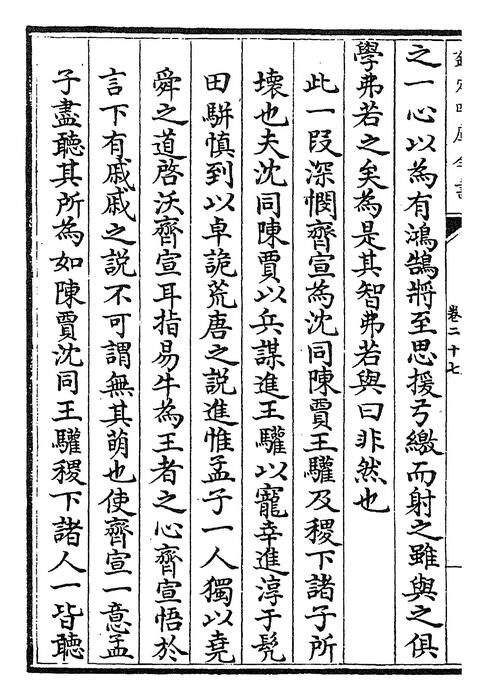 欽定四庫全書
卷二十七
之一心以為有鴻鵠將至思援弓繳而射之雖與之俱
學弗若之矣為是其智弗若與曰非然也
此一段深憫齊宣為沈同陳賈王驩及稷下諸子所
壞也夫沈同陳賈以兵謀進王驩以寵幸進淳于髠
田駢慎到以卓詭荒唐之說進惟孟子一人獨以堯
舜之道啓沃齊宣耳指易牛為王者之心齊宣悟於
言下有戚戚之說不可謂無其萌也使齊宣一意孟
子盡聽其所為如陳賈沈同王驩稷下諸人一皆聽